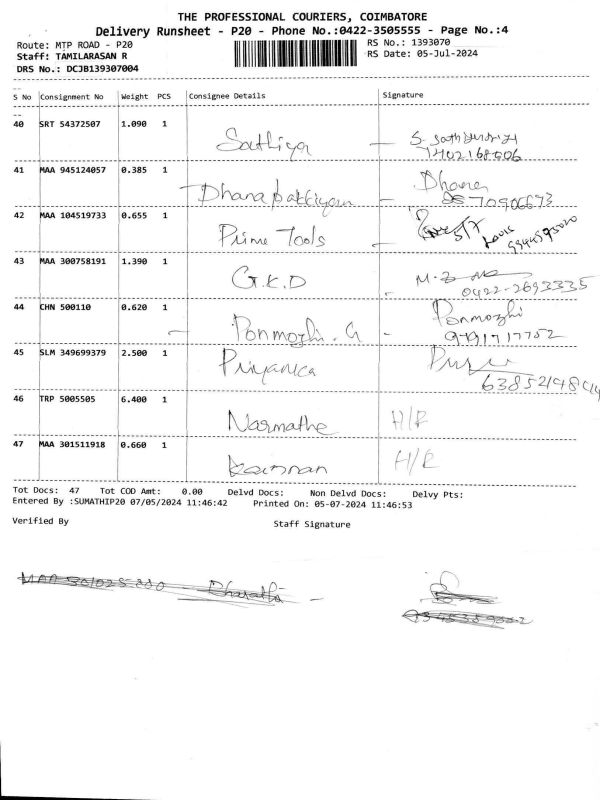 THE PROFESSIONAL COURIERS, COIMBATORE
Delivery Runsheet - P20 - Phone No.:0422-3505555 - Page No.:4
Route: MTP ROAD - P20
RS No.: 1393070
Staff: TAMILARASAN R
RS Date: 05-Jul-2024
DRS No.: DCJB139307004
S No Consignment No Weight PCS Consignee Details Signature
40 SRT 54372507 1.090 1 Sathiya
41 MAA 945124057 0.385 1 Dhanabakkiyam Dhana
42 MAA 104519733 0.655 1 Prime Tools
43 MAA 300758191 1.390 1 G.K.D 0422-2693335
44 CHN 500110 0.620 1 Ponmozhi. G - Ponmozhi
9791717752
45 SLM 349699379 2.500 1 Priyanka
46 TRP 5005505 6.400 1 Narmathe H/R
47 MAA 301511918 0.660 1 Kannan H/R
Tot Docs: 47 Tot COD Amt: 0.00 Delvd Docs: Non Delvd Docs: Delvy Pts:
Entered By :SUMATHIP20 07/05/2024 11:46:42 Printed On: 05-07-2024 11:46:53
Verified By Staff Signature
Bharathi